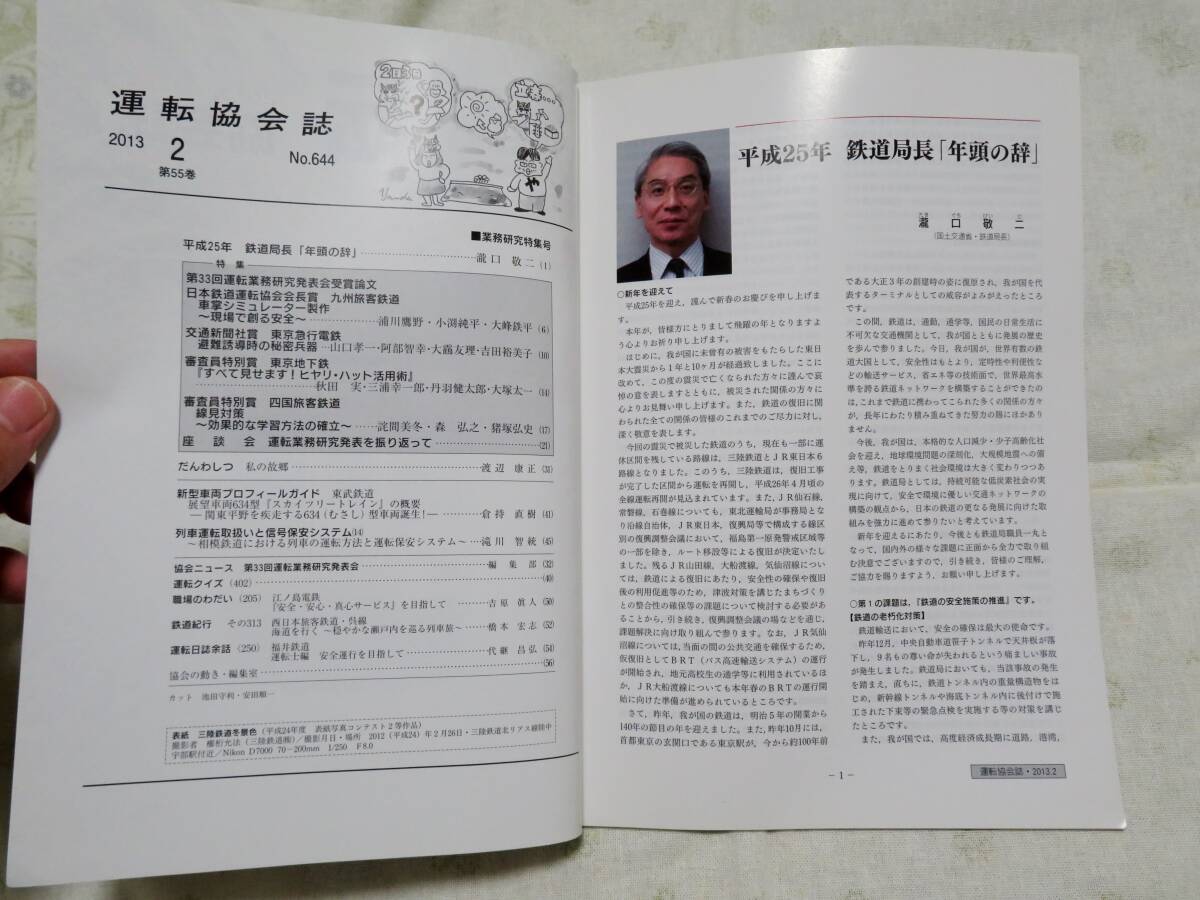 運転協会誌
2013 2 No.644
第55巻
2日3日
?
立春…
や
■業務研究特集号
平成25年 鉄道局長「年頭の辞」……瀧口 敬二(1)
特集
第33回運転業務研究発表会受賞論文
日本鉄道運転協会会長賞 九州旅客鉄道
車掌シミュレーター製作
〜現場で創る安全〜……浦川鷹野・小渕純平・大峰鉄平(6)
交通新聞社賞 東京急行電鉄
避難誘導時の秘密兵器…山口孝一・阿部智幸・大靏友理・吉田裕美子(10)
審査員特別賞 東京地下鉄
『すべて見せます!ヒヤリ・ハット活用術』
……秋田 実・三浦幸一郎・丹羽健太郎・大塚太一(14)
審査員特別賞 四国旅客鉄道
線見対策
〜効果的な学習方法の確立〜……詫間美冬・森 弘之・猪塚弘史(17)
座談会 運転業務研究発表を振り返って……(21)
だんわしつ 私の故郷……渡辺 康正(31)
新型車両プロフィールガイド 東武鉄道
展望車両634型『スカイツリートレイン』の概要
―関東平野を疾走する634(むさし)型車両誕生!―……倉持 直樹(41)
列車運転取扱いと信号保安システム(14)
〜相模鉄道における列車の運転方法と運転保安システム〜…滝川 智統(45)
協会ニュース 第33回運転業務研究発表会……編集部(32)
運転クイズ(402)……(40)
職場のわだい(205) 江ノ島電鉄
『安全・安心・真心サービス』を目指して……吉原 眞人(50)
鉄道紀行 その313 西日本旅客鉄道・呉線
海道を行く 〜穏やかな瀬戸内を巡る列車旅〜……橋本 宏志(52)
運転日誌余話(250) 福井鉄道
運転士編 安全運行を目指して……代継 昌弘(54)
協会の動き・編集室……(56)
カット 池田守利・安田順一
表紙 三陸鉄道冬景色(平成24年度 表紙写真コンテスト2等作品)
撮影者 櫛桁光法(三陸鉄道㈱)/撮影月日・場所 2012(平成24)年2月26日・三陸鉄道北リアス線陸中
宇部駅付近/Nikon D7000 70−200mm 1/250 F8.0
平成25年 鉄道局長「年頭の辞」
たき ぐち けい じ
瀧口 敬二
(国土交通省・鉄道局長)
○新年を迎えて
平成25年を迎え、謹んで新春のお慶びを申し上げます。
本年が、皆様方にとりまして飛躍の年となりますよう心よりお祈り申し上げます。
はじめに、我が国に未曾有の被害をもたらした東日
本大震災から1年と10ヶ月が経過致しました。ここに
改めて、この度の震災で亡くなられた方々に謹んで哀
悼の意を表しますとともに、被災された関係の方々に
心よりお見舞い申し上げます。また、鉄道の復旧に関
わられた全ての関係の皆様のこれまでのご尽力に対し、
深く敬意を表します。
今回の震災で被災した鉄道のうち、現在も一部に運
休区間を残している路線は、三陸鉄道とJR東日本6
路線となりました。このうち、三陸鉄道は、復旧工事
が完了した区間から運転を再開し、平成26年4月頃の
全線運転再開が見込まれています。また、JR仙石線、
常磐線、石巻線についても、東北運輸局が事務局とな
り沿線自治体、JR東日本、復興局等で構成する線区
別の復興調整会議において、福島第一原発警戒区域等
の一部を除き、ルート移設等による復旧が決定いたし
ました。残るJR山田線、大船渡線、気仙沼線につい
ては、鉄道による復旧にあたり、安全性の確保や復旧
後の利用促進等のため、津波対策を講じたまちづくり
との整合性の確保等の課題について検討する必要があ
ることから、引き続き、復興調整会議の場などを通じ、
課題解決に向け取り組んで参ります。なお、JR気仙
沼線については、当面の間の公共交通を確保するため、
仮復旧としてBRT(バス高速輸送システム)の運行
が開始され、地元高校生の通学等に利用されているほ
か、JR大船渡線についても本年春のBRTの運行開
始に向けた準備が進められているところです。
さて、昨年、我が国の鉄道は、明治5年の開業から
140年の節目の年を迎えました。また、昨年10月には、
首都東京の玄関口である東京駅が、今から約100年前
である大正3年の創建時の姿に復原され、我が国を代
表するターミナルとしての威容がよみがえったところ
です。
この間、鉄道は、通勤、通学等、国民の日常生活に
不可欠な交通機関として、我が国とともに発展の歴史
を歩んで参りました。今日、我が国が、世界有数の鉄
道大国として、安全性はもとより、定時性や利便性な
どの輸送サービス、省エネ等の技術面で、世界最高水
準を誇る鉄道ネットワークを構築することができたの
は、これまで鉄道に携わってこられた多くの関係の方々
が、長年にわたり積み重ねてきた努力の賜にほかあり
ません。
今後、我が国は、本格的な人口減少・少子高齢化社
会を迎え、地球環境問題の深刻化、大規模地震への備
え等、鉄道をとりまく社会環境は大きく変わりつつあ
ります。鉄道局としては、持続可能な低炭素社会の実
現に向けて、安全で環境に優しい交通ネットワークの
構築の観点から、日本の鉄道の更なる発展に向けた取
組みを強力に進めて参りたいと考えています。
新年を迎えるにあたり、今後とも鉄道局職員一丸と
なって、国内外の様々な課題に正面から全力で取り組
む決意でございますので、引き続き、皆様のご理解、
ご協力を賜りますよう、お願い申し上げます。
○第1の課題は、『鉄道の安全施策の推進』です。
【鉄道の老朽化対策】
鉄道輸送において、安全の確保は最大の使命です。
昨年12月、中央自動車道笹子トンネルで天井板が落
下し、9名もの尊い命が失われるという痛ましい事故
が発生しました。鉄道局においても、当該事故の発生
を踏まえ、直ちに、鉄道トンネル内の重量構造物をは
じめ、新幹線トンネルや海底トンネル内に後付けで施
工された下束等の緊急点検を実施する等の対策を講じ
たところです。
また、我が国では、高度経済成長期に道路、港湾、
−1−
運転協会誌・2013.2